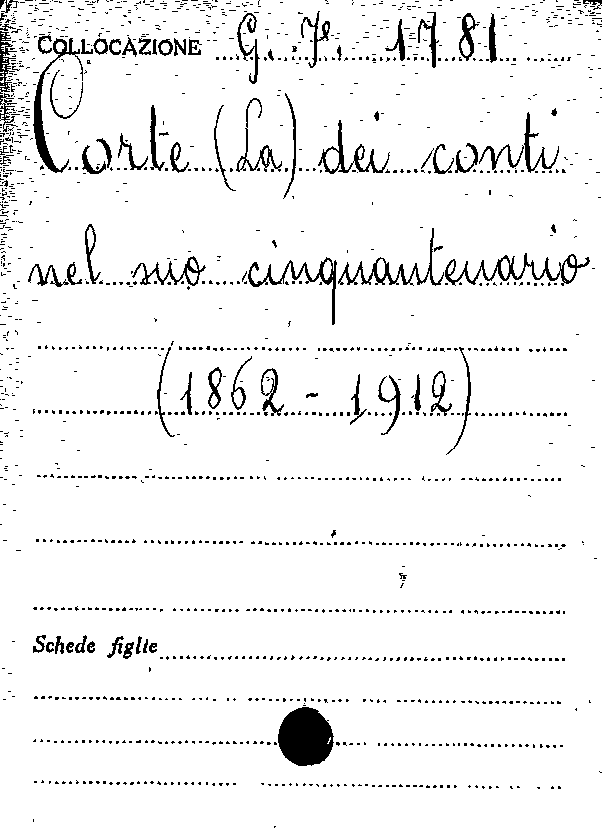 COLLOCAZIONE G. Fe. 1781
Corte (La) dei conti
nel suo cinquantenario
(1862 - 1912)
Schede figlie